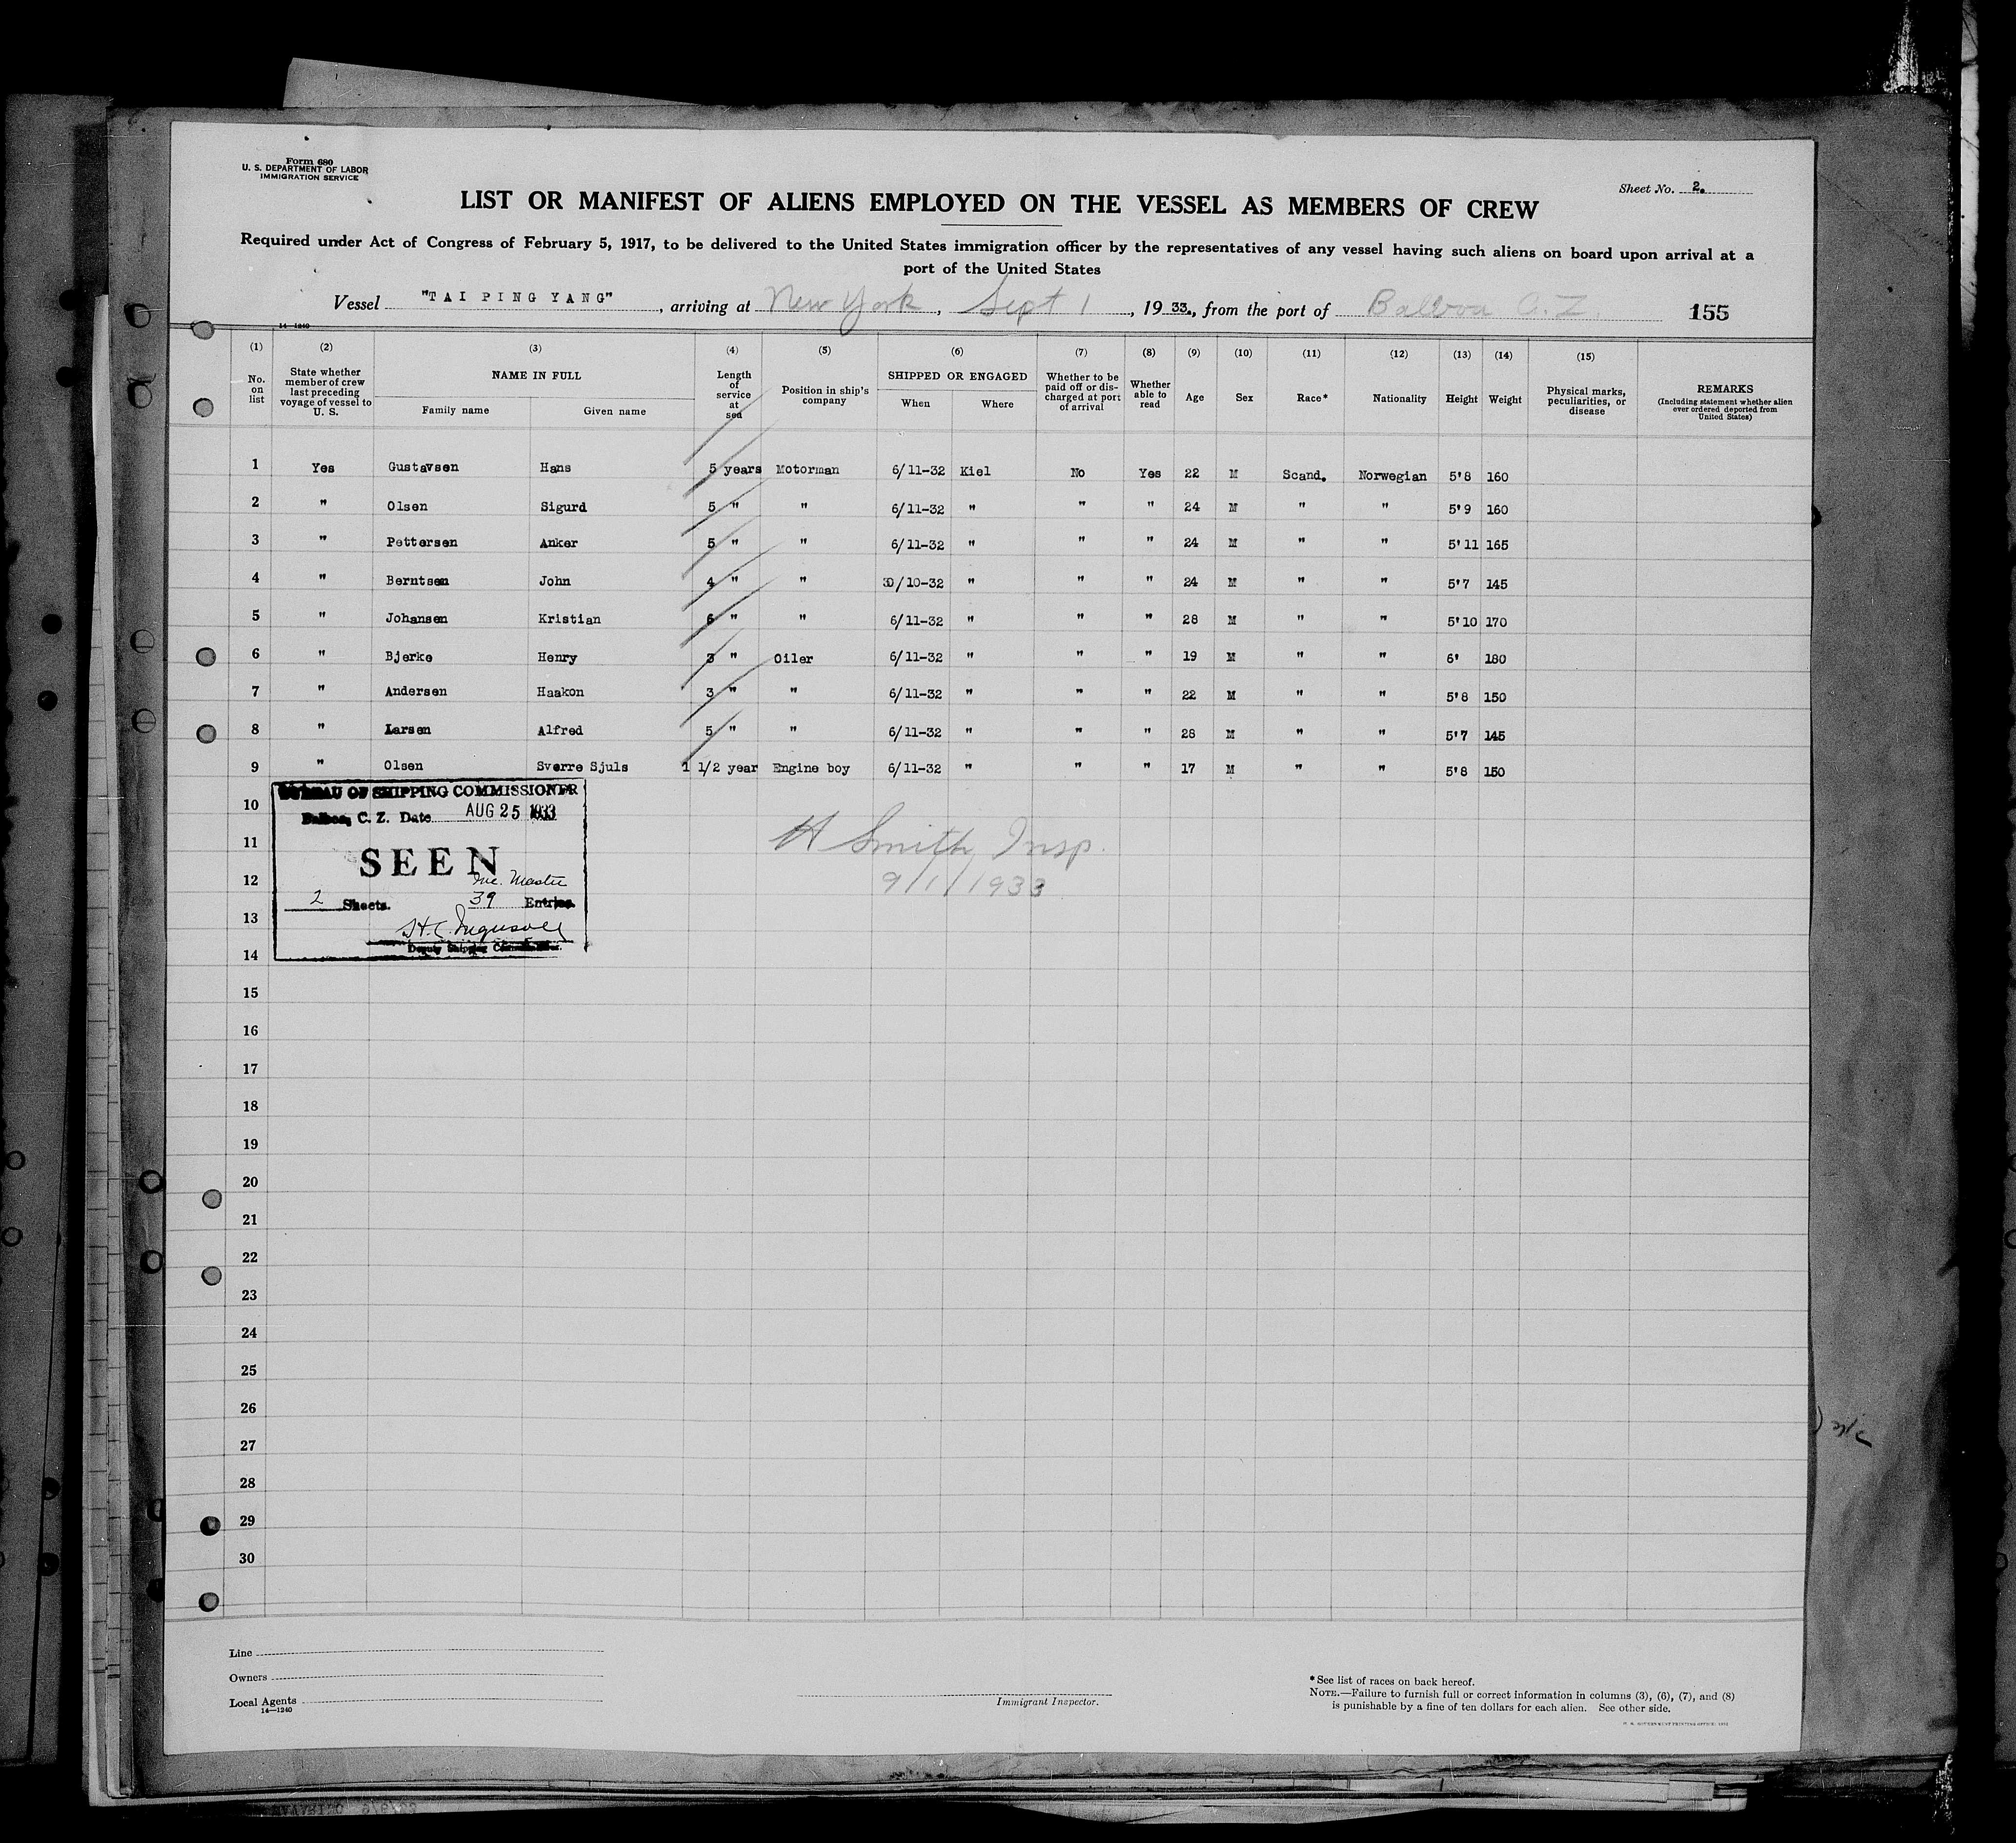 Form 680
U. S. DEPARTMENT OF LABOR
IMMIGRATION SERVICE
Sheet No. 2.
LIST OR MANIFEST OF ALIENS EMPLOYED ON THE VESSEL AS MEMBERS OF CREW
Required under Act of Congress of February 5, 1917, to be delivered to the United States immigration officer by the representatives of any vessel having such aliens on board upon arrival at a
port of the United States
Vessel "TAI PING YANG", arriving at New York, Sept 1, 1933., from the port of Balboa C. Z. 155
14—1240
(1) (2) (3) (4) (5) (6) (7) (8) (9) (10) (11) (12) (13) (14) (15)
No. on list
State whether member of crew last preceding voyage of vessel to U. S.
NAME IN FULL
Family name Given name
Length of service at sea
Position in ship's company
SHIPPED OR ENGAGED
When Where
Whether to be paid off or discharged at port of arrival
Whether able to read
Age Sex Race* Nationality Height Weight
Physical marks, peculiarities, or disease
REMARKS
(Including statement whether alien ever ordered deported from United States)
1 Yes Gustavsen Hans 5 years Motorman 6/11-32 Kiel No Yes 22 M Scand. Norwegian 5'8 160
2 " Olsen Sigurd 5 " " 6/11-32 " " " 24 M " " 5'9 160
3 " Pettersen Anker 5 " " 6/11-32 " " " 24 M " " 5'11 165
4 " Berntsen John 4 " " 30/10-32 " " " 24 M " " 5'7 145
5 " Johansen Kristian 6 " " 6/11-32 " " " 28 M " " 5'10 170
6 " Bjerke Henry 3 " Oiler 6/11-32 " " " 19 M " " 6' 180
7 " Andersen Haakon 3 " " 6/11-32 " " " 22 M " " 5'8 150
8 " Larsen Alfred 5 " " 6/11-32 " " " 28 M " " 5'7 145
9 " Olsen Sverre Sjuls 1 1/2 year Engine boy 6/11-32 " " " 17 M " " 5'8 150
BUREAU OF SHIPPING COMMISSIONER
Balboa, C. Z. Date AUG 25 1933
SEEN
Inc. Master
2 Sheets. 39 Entries.
Deputy Shipping Commissioner.
H Smith, Insp.
9/1/1933
10
11
12
13
14
15
16
17
18
19
20
21
22
23
24
25
26
27
28
29
30
Line
Owners
Local Agents
14—1240
Immigrant Inspector.
*See list of races on back hereof.
NOTE.—Failure to furnish full or correct information in columns (3), (6), (7), and (8)
is punishable by a fine of ten dollars for each alien. See other side.